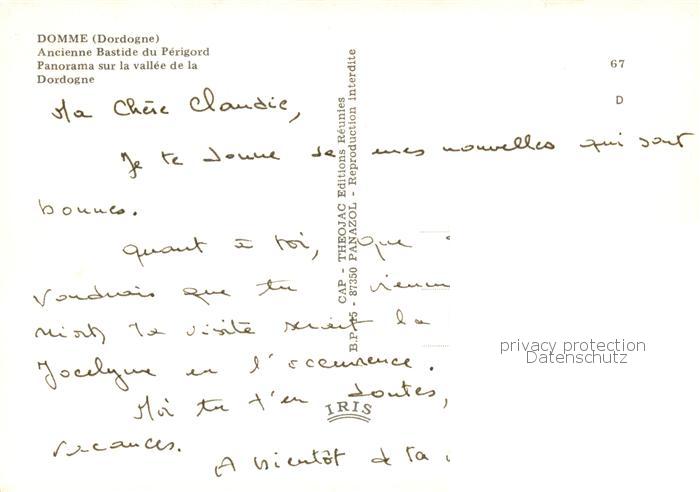 DOMME (Dordogne)
Ancienne Bastide du Périgord
Panorama sur la vallée de la
Dordogne
67
D
Ma Chère Claudie,
Je te donne de mes nouvelles qui sont
bonnes.
Quant à toi, que
voudrais que tu
la visite serait la
Jocelyne en l'occurrence.
Moi tu t'en doutes,
vacances.
A bientôt de ta
CAP - THEOJAC Editions Réunies
B.P. - 87350 PANAZOL - Reproduction interdite
IRIS
privacy protection
Datenschutz